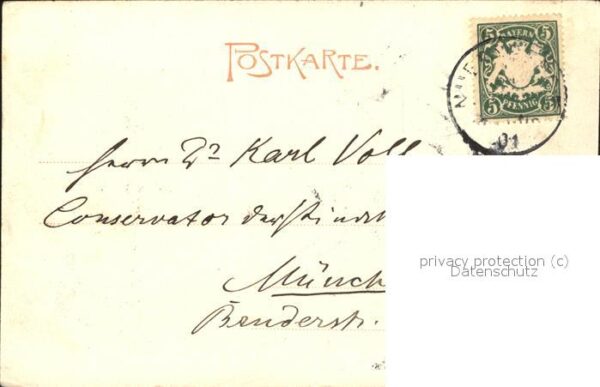 POSTKARTE.
5 BAYERN 5
5 PFENNIG 5
01
Herrn Dr Karl Voll
Conservator der
Münch
privacy protection (c)
Datenschutz